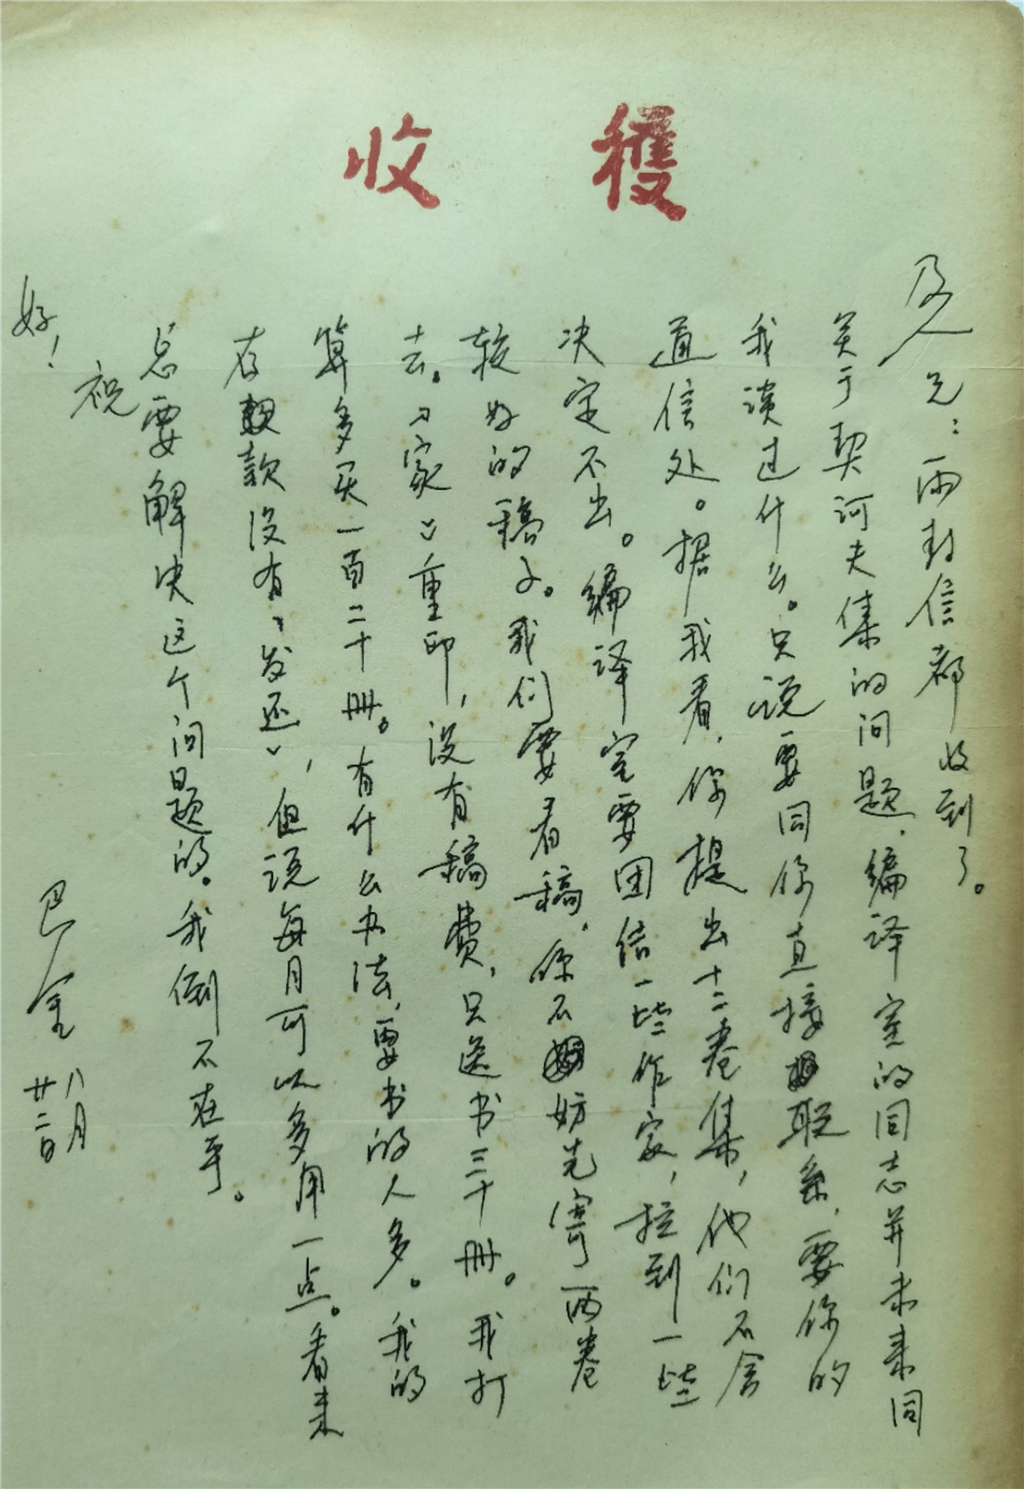 收穫
及人兄：两封信都收到了。
关于契诃夫集的问题，编译室的同志并未来同
我谈过什么。只说要同你直接联系，要你的
通信处。据我看，你提出十二卷集，他们不会
决定不出。编译室要团结一些作家，拉到一些
较好的稿子。我们要看稿，你不妨先寄两卷
去。《家》重印，没有稿费，只送书三十册。我打
算多买一百二十册。有什么办法，要书的人多。我的
存款没有“发还”，但说每月可以多用一点。看来
总要解决这个问题的。我倒不在乎。
祝
好！
巴金
八月
廿二日